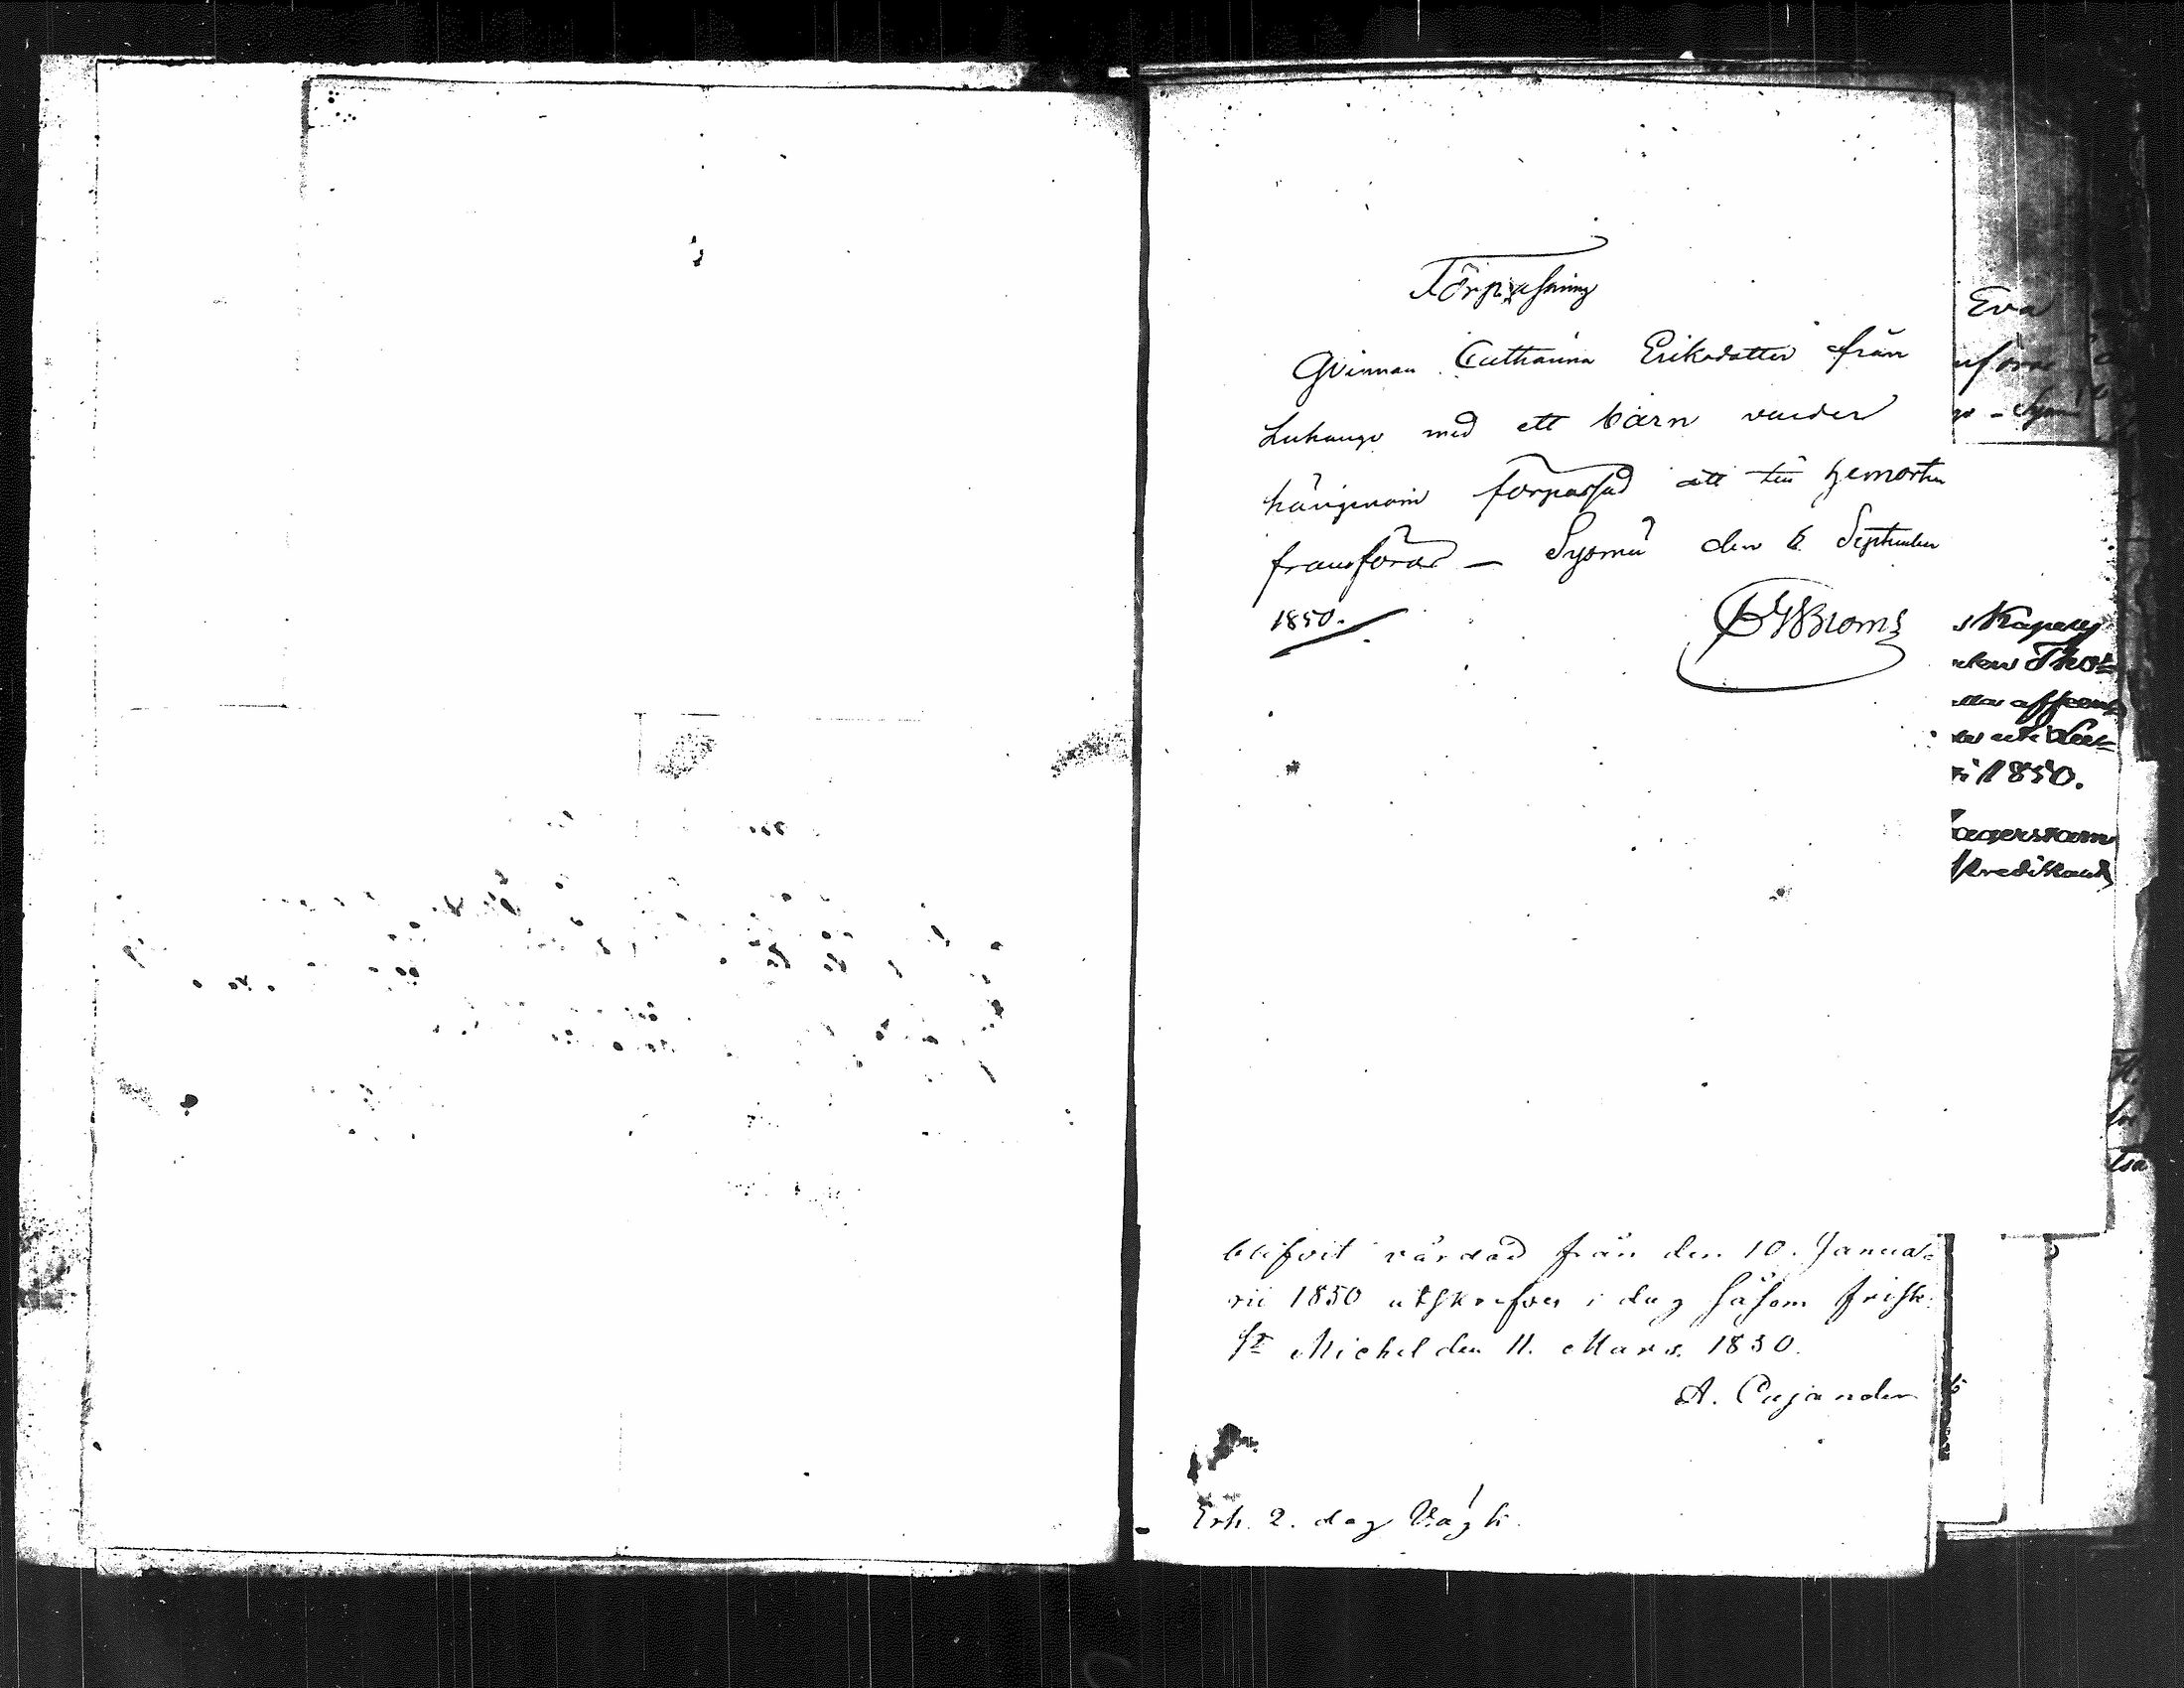 Förpassning
Qvinnan Catharina Eriksdotter från
Luhango med ett barn varder
härigenom förpassad att till hemorten
framföras — Sysmä den 6 September
1850.
Eva
s Kapell
1850.
blifvit vårdad från den 10. Janua-
rii 1850 utskrifves i dag såsom frisk.
St Michel den 11. Mars. 1850.
A. Cajander
Erh. 2. dag